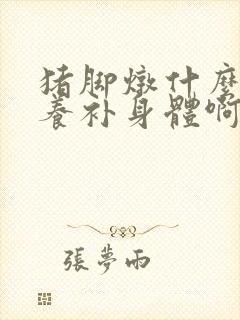 猪脚燉什麼
養补身體啊
張夢雨